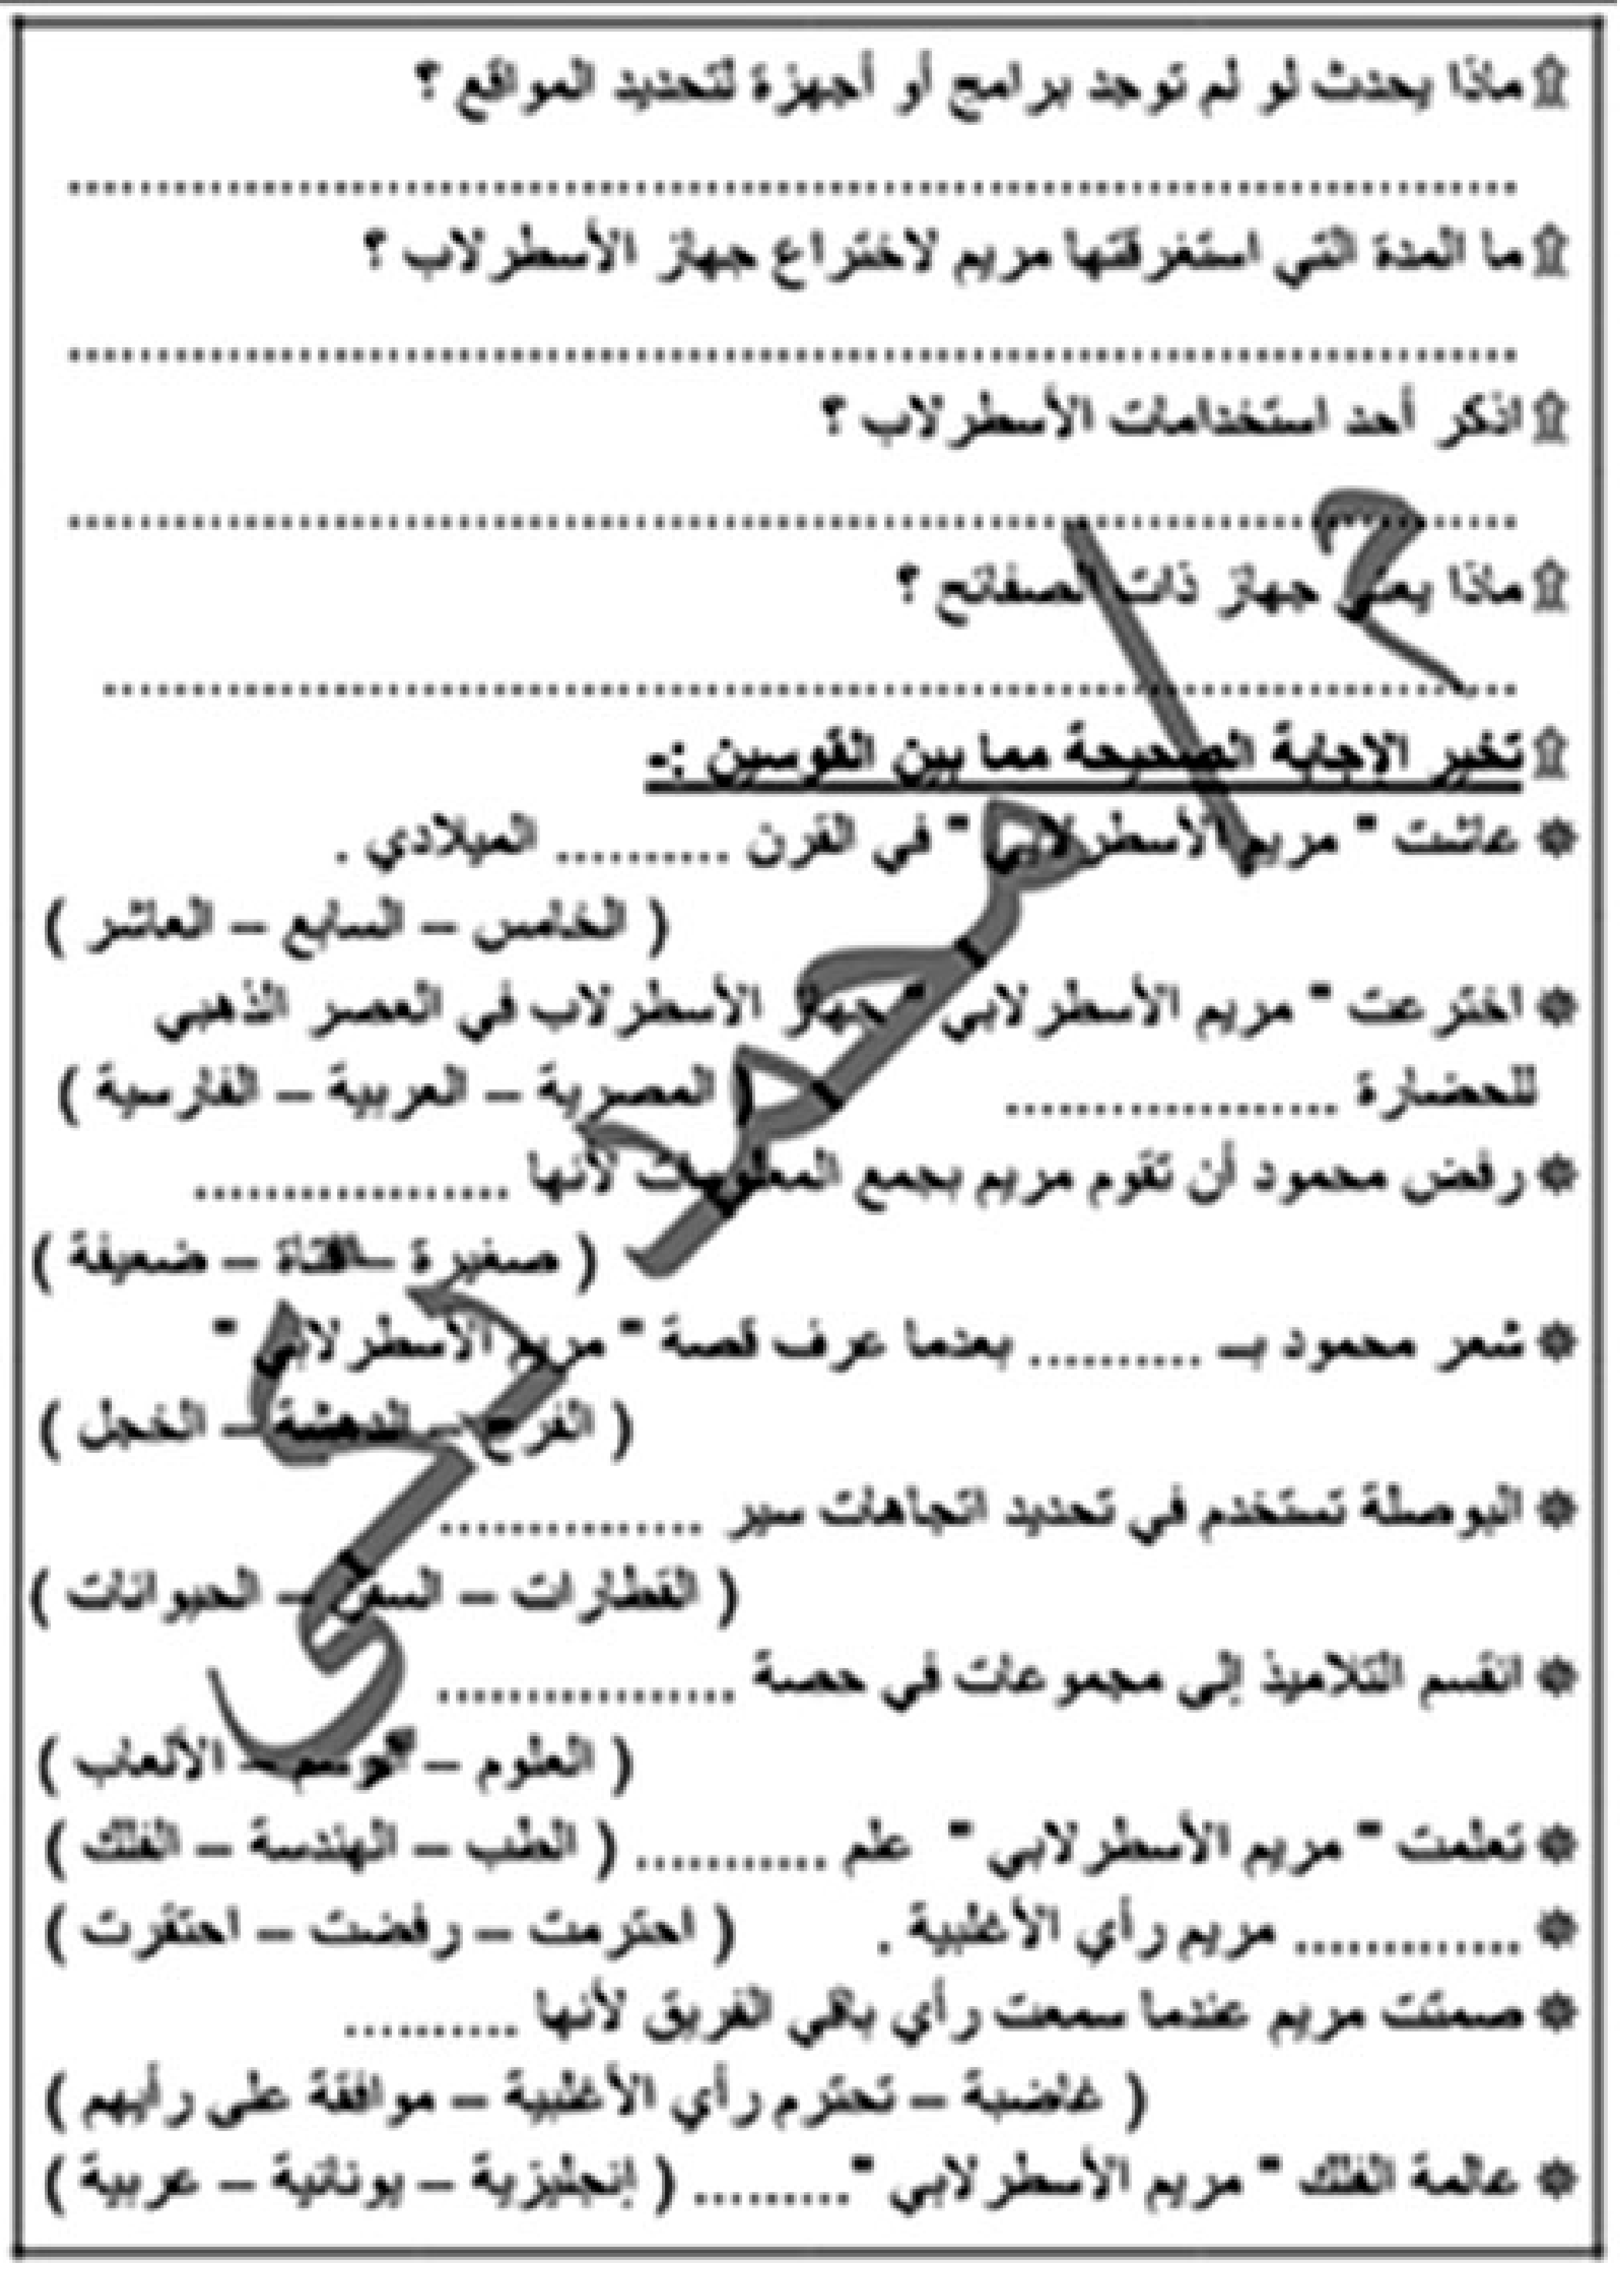 ماذا يحدث لو لم توجد برامج أو أجهزة لتحديد المواقع ؟
ما المدة التي استغرقتها مريم لاختراع جهاز الأسطرلاب ؟
اذكر أحد استخدامات الأسطرلاب ؟
ماذا يعني جهاز ذات الصفائح ؟
تخير الإجابة الصحيحة مما بين القوسين :-
عاشت " مريم الأسطرلابي " في القرن .......... الميلادي .
( الخامس – السابع – العاشر )
اخترعت " مريم الأسطرلابي " جهاز الأسطرلاب في العصر الذهبي
للحضارة ................... ( المصرية – العربية – الفارسية )
رفض محمود أن تقوم مريم بجمع المعلومات لأنها ..................
( صغيرة – فتاة – ضعيفة )
شعر محمود بـ .......... بعدما عرف قصة " مريم الأسطرلابي "
( الفرح – الدهشة – الخجل )
البوصلة تستخدم في تحديد اتجاهات سير ...............
( القطارات – السفن – الحيوانات )
انقسم التلاميذ إلى مجموعات في حصة .................
( العلوم – الرسم – الألعاب )
تعلمت " مريم الأسطرلابي " علم ........... ( الطب – الهندسة – الفلك )
............. مريم رأي الأغلبية . ( احترمت – رفضت – احتقرت )
صمتت مريم عندما سمعت رأي باقي الفريق لأنها ..........
( غاضبة – تحترم رأي الأغلبية – موافقة على رأيهم )
عالمة الفلك " مريم الأسطرلابي " ......... ( إنجليزية – يونانية – عربية )